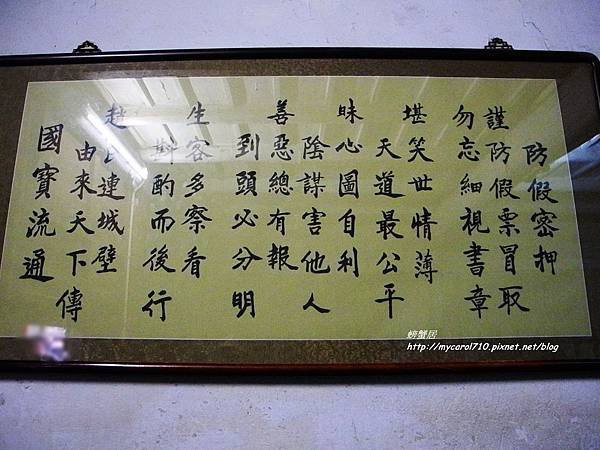 防假密押
謹防假票冒取
勿忘細視書章
堪笑世情薄
天道最公平
昧心圖自利
陰謀害他人
善惡總有報
到頭必分明
生客多察看
斟酌而後行
趙氏連城壁
由來天下傳
國寶流通
螃蟹居
http://mycarol710.pixnet.net/blog